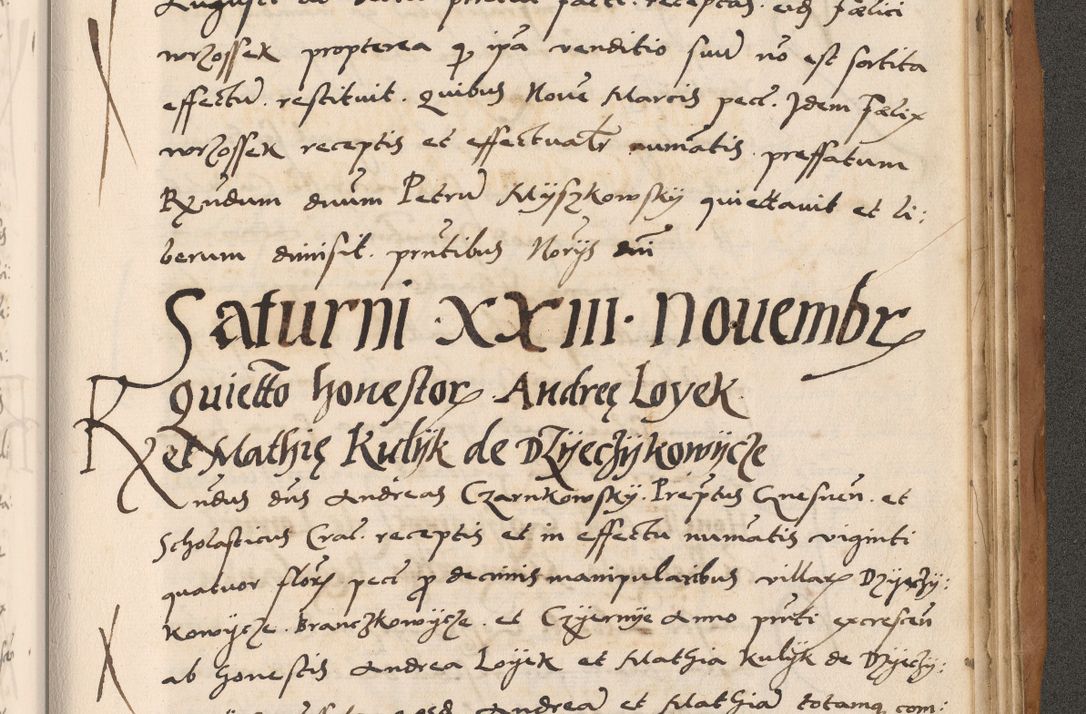 Augusti
wrzossek propterea q ipa venditio suũ nõ est sortita
effectũ. restituit. quibus Novẽ Marcis pecẽ. Idem Fælix
wrzossek receptis et effectualr numatis. preffatum
Rṽndum dnum Petrũ Mÿszkowskÿ quiettavit et li:
berum dimisit. pñtibus Norÿs dni
Saturni XXIII. Nouembr
Quietto honestor Andreę Loyek
et Mathię Kulÿk de Dzÿeczÿkowÿcze
Rṽndus dns Andreas Czarnkowskÿ. Prepᷤtus Gnesneñ. et
Scholasticus Crac̃. receptis et in effectu numatis viginti
quatuor florẽ pecẽ p decimis manipularibus villarẽ Dzÿeczÿ:
kowÿcze. Branczkowÿcze. et Czÿernÿe Anno pñti excresceñ
ab honestis Andrea Loÿek et Mathia Kulÿk de Dzÿeczÿ:
Andreã et Mathiã totamq com: